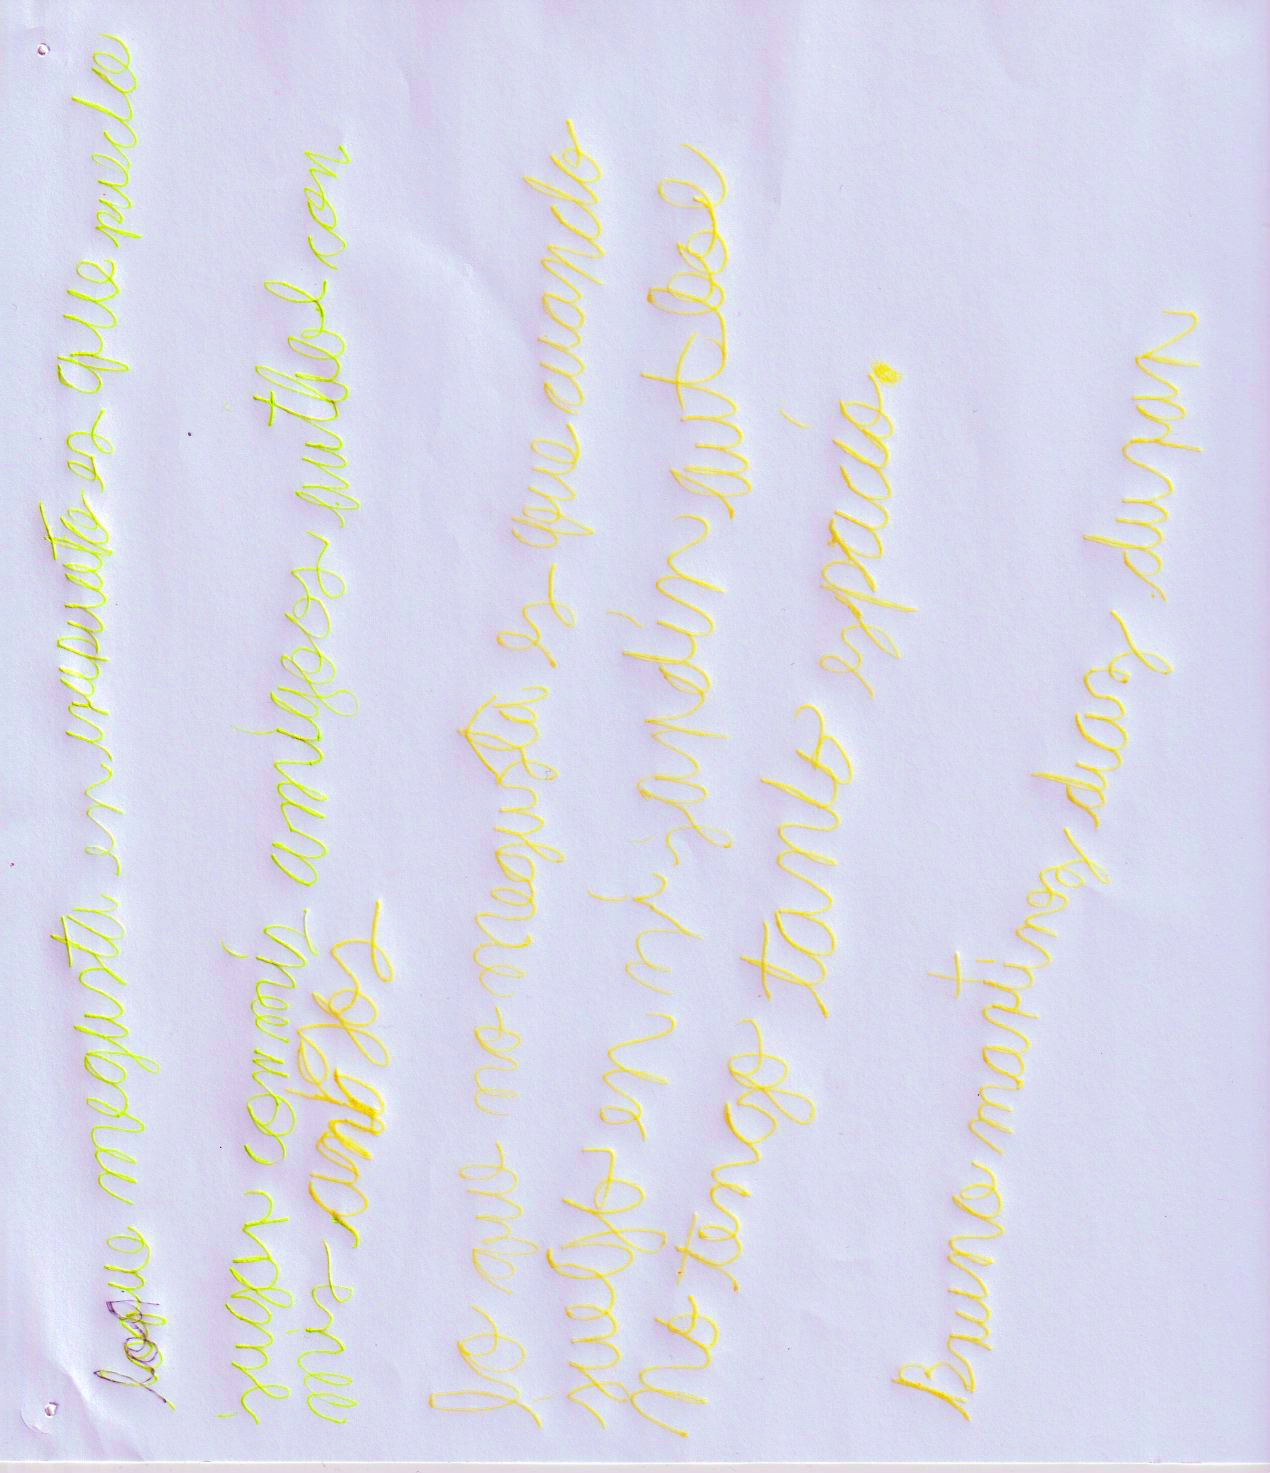 loque megusta en irapuato es que puedo
jugar comis amigos futbol con
mis amigos
lo que no megusta es que cuando
juego en mi jardin futbool
no tengo tanto espacio.
Bruno martinez diaz duran